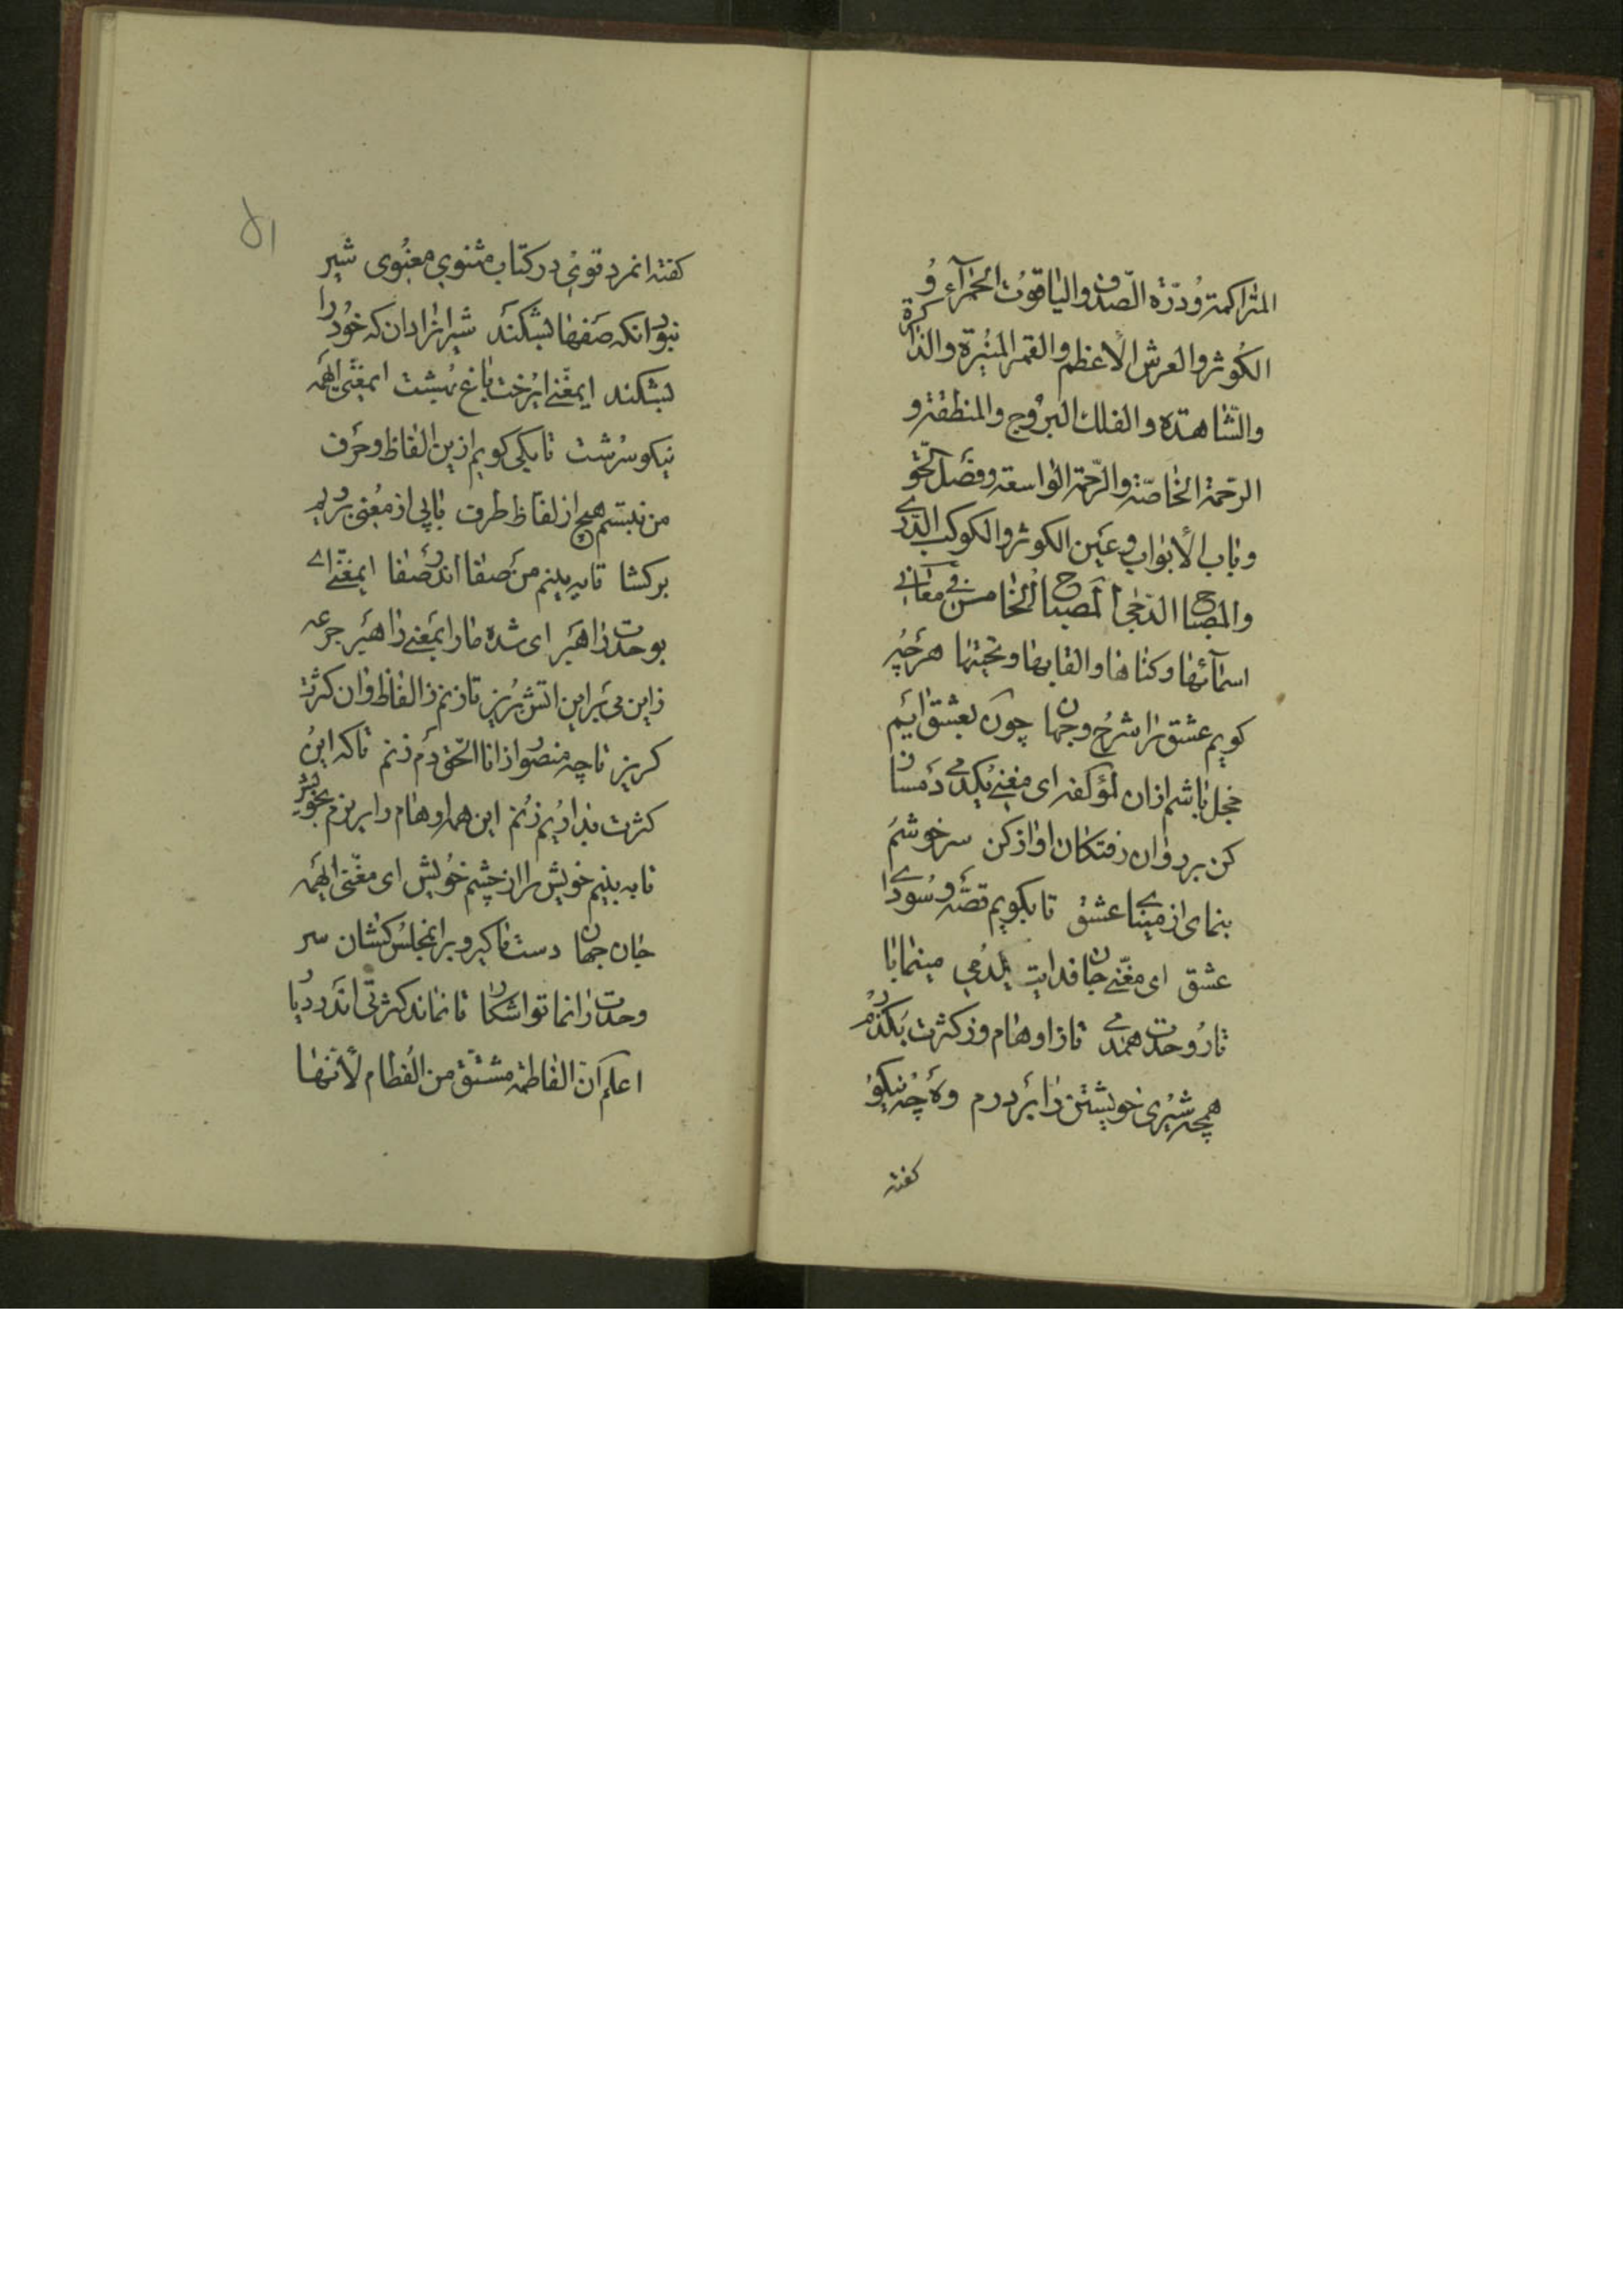 المتراکمة و درّة الصّدف و الیاقوت الحمرآء و
الکوثر و العرش الأعظم و القمر المنیرة و الذاکرة
و الشّاهدة و الفلك البروج و المنطقة و
الرحمة الخاصّة و الرّحمة الواسعة و فصل الحق
و باب الأبواب و عین الکوثر و الکوکب الدّری
و المصباح الدّجی المصباح الخامس فی معانی
اسمآئها و کناها و القابها و محبّتها هر چه
کویم عشق را شرح و جهان چون بعشق ایم
خجل باشم ازان لمؤلفه ای مغنی یکدمی دمساز
کن بر روان رفتکان اواز کن سر خوشم
بنمای از مینای عشق تا بکویم قصّه و سودای
عشق ای مغنّی جان فدایت یکدمی مینما با
تار وحدت همدمی تا زاوهام و ز کثرت بکذرم
همچه شیری خویشتن را بر درم وه چه نیکو
کفته
۵۱
کفته انمرد قوی در کتاب مثنوی معنوی شیر
نبود انکه صفها بشکند شیر انرا دان که خود را
بشکند ایمغنّی ایرخت باغ بهشت ایمغنّی ایهمه
نیکو سرشت تا بکی کویم ازین الفاظ و حرف
من نبستم هیچ از لفاظ طرف بابی از معنی برویم
برکشا تا ببینم من صفا اندر صفا ایمغنّی ای
بوحدت راهبر ای شده مارا بمعنی راهبر جرعه
زاین می بر این اتش بریز تا زنم زالفاظ وان کثرت
کریز تا چه منصور از انا الحق دم زنم تا که این
کثرت بذاریم زنم این همه اوهام را بریزم بجوش
تا به بینم خویش را از چشم خویش ای مغنّی ایهمه
جان جهان دست ما کیر و برانمجلس کشان سر
وحدت را نما تو اشکار تا نماند کثرتی اندر دیار
اعلم انّ الفاطمة مشتق من الفطام لأنّها